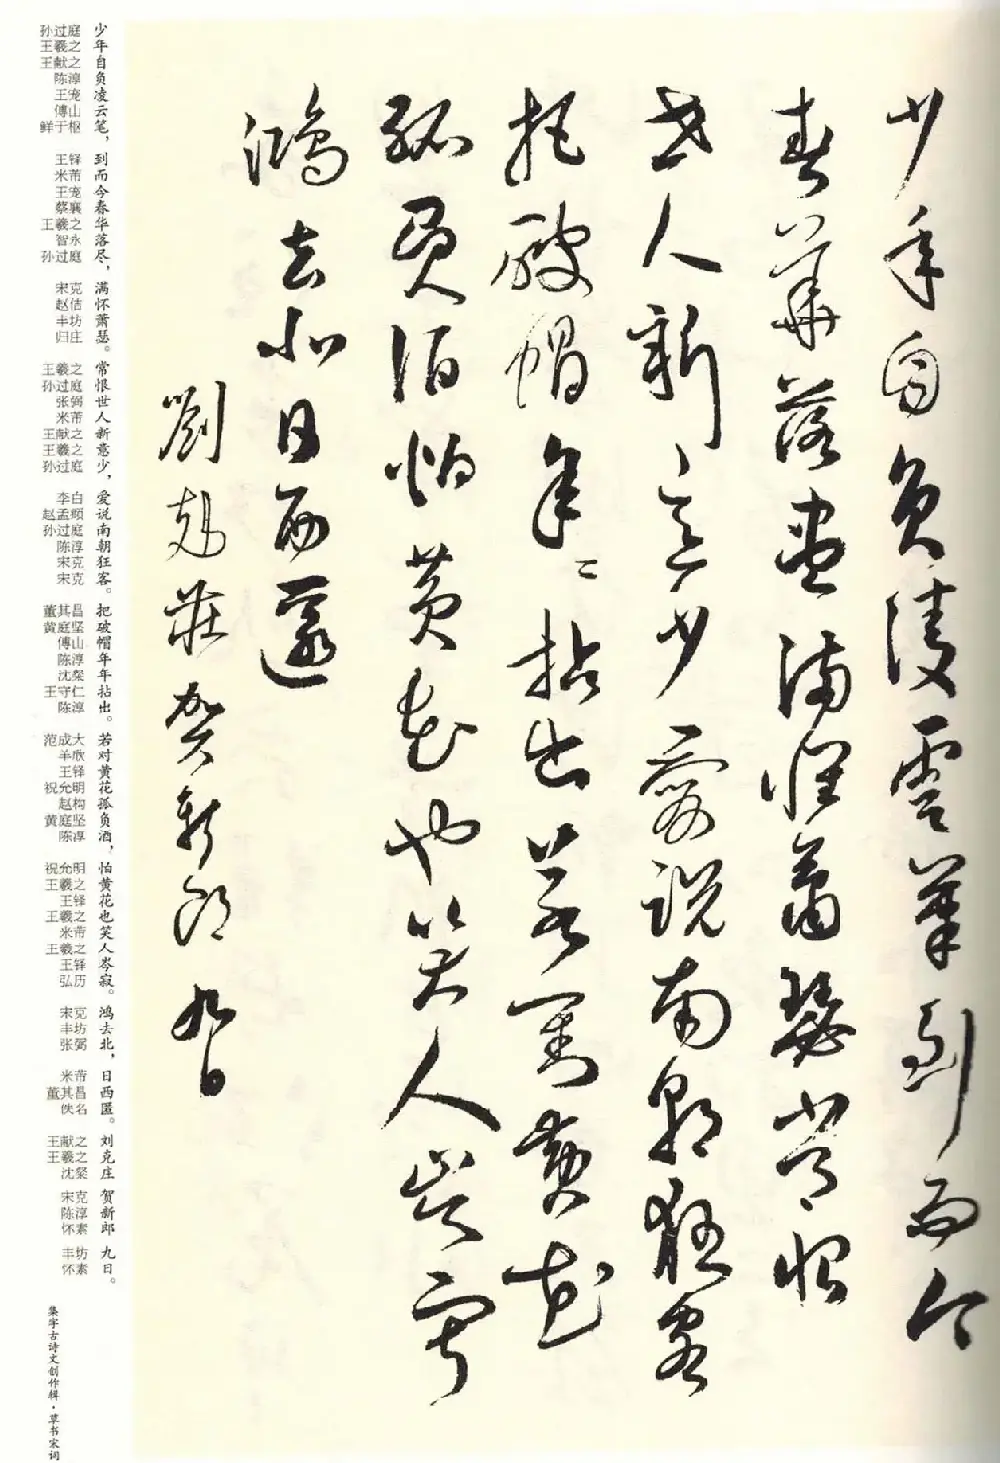 少年自負凌雲筆到而今
春華落盡滿懷蕭瑟常恨
世人新意少愛說南朝狂客
把破帽年々拈出若對黃花
孤負酒怕黃花也笑人岑寂
鴻去北日西匿
劉克莊賀新郎九日
少年自负凌云笔，到而今春华落尽，满怀萧瑟。常恨世人新意少，爱说南朝狂客。把破帽年年拈出。若对黄花孤负酒，怕黄花也笑人岑寂。鸿去北，日西匿。刘克庄 贺新郎 九日。
孙过庭 王羲之 王献之 陈淳 王宠 傅山 鲜于枢 王铎 米芾 王宠 蔡襄 王羲之 智永 孙过庭 宋克 赵佶 丰坊 归庄 王羲之 孙过庭 张弼 米芾 王献之 王羲之 孙过庭 李白 赵孟頫 孙过庭 陈淳 宋克 宋克 董其昌 黄庭坚 傅山 陈淳 沈粲 王守仁 陈淳 范成大 羊欣 王铎 祝允明 赵构 黄庭坚 陈淳 祝允明 王羲之 王铎 王羲之 米芾 王羲之 王铎 弘历 宋克 丰坊 张弼 米芾 董其昌 佚名 王献之 王羲之 沈粲 宋克 陈淳 怀素 丰坊 怀素
集字古诗文创作辑·草书宋词